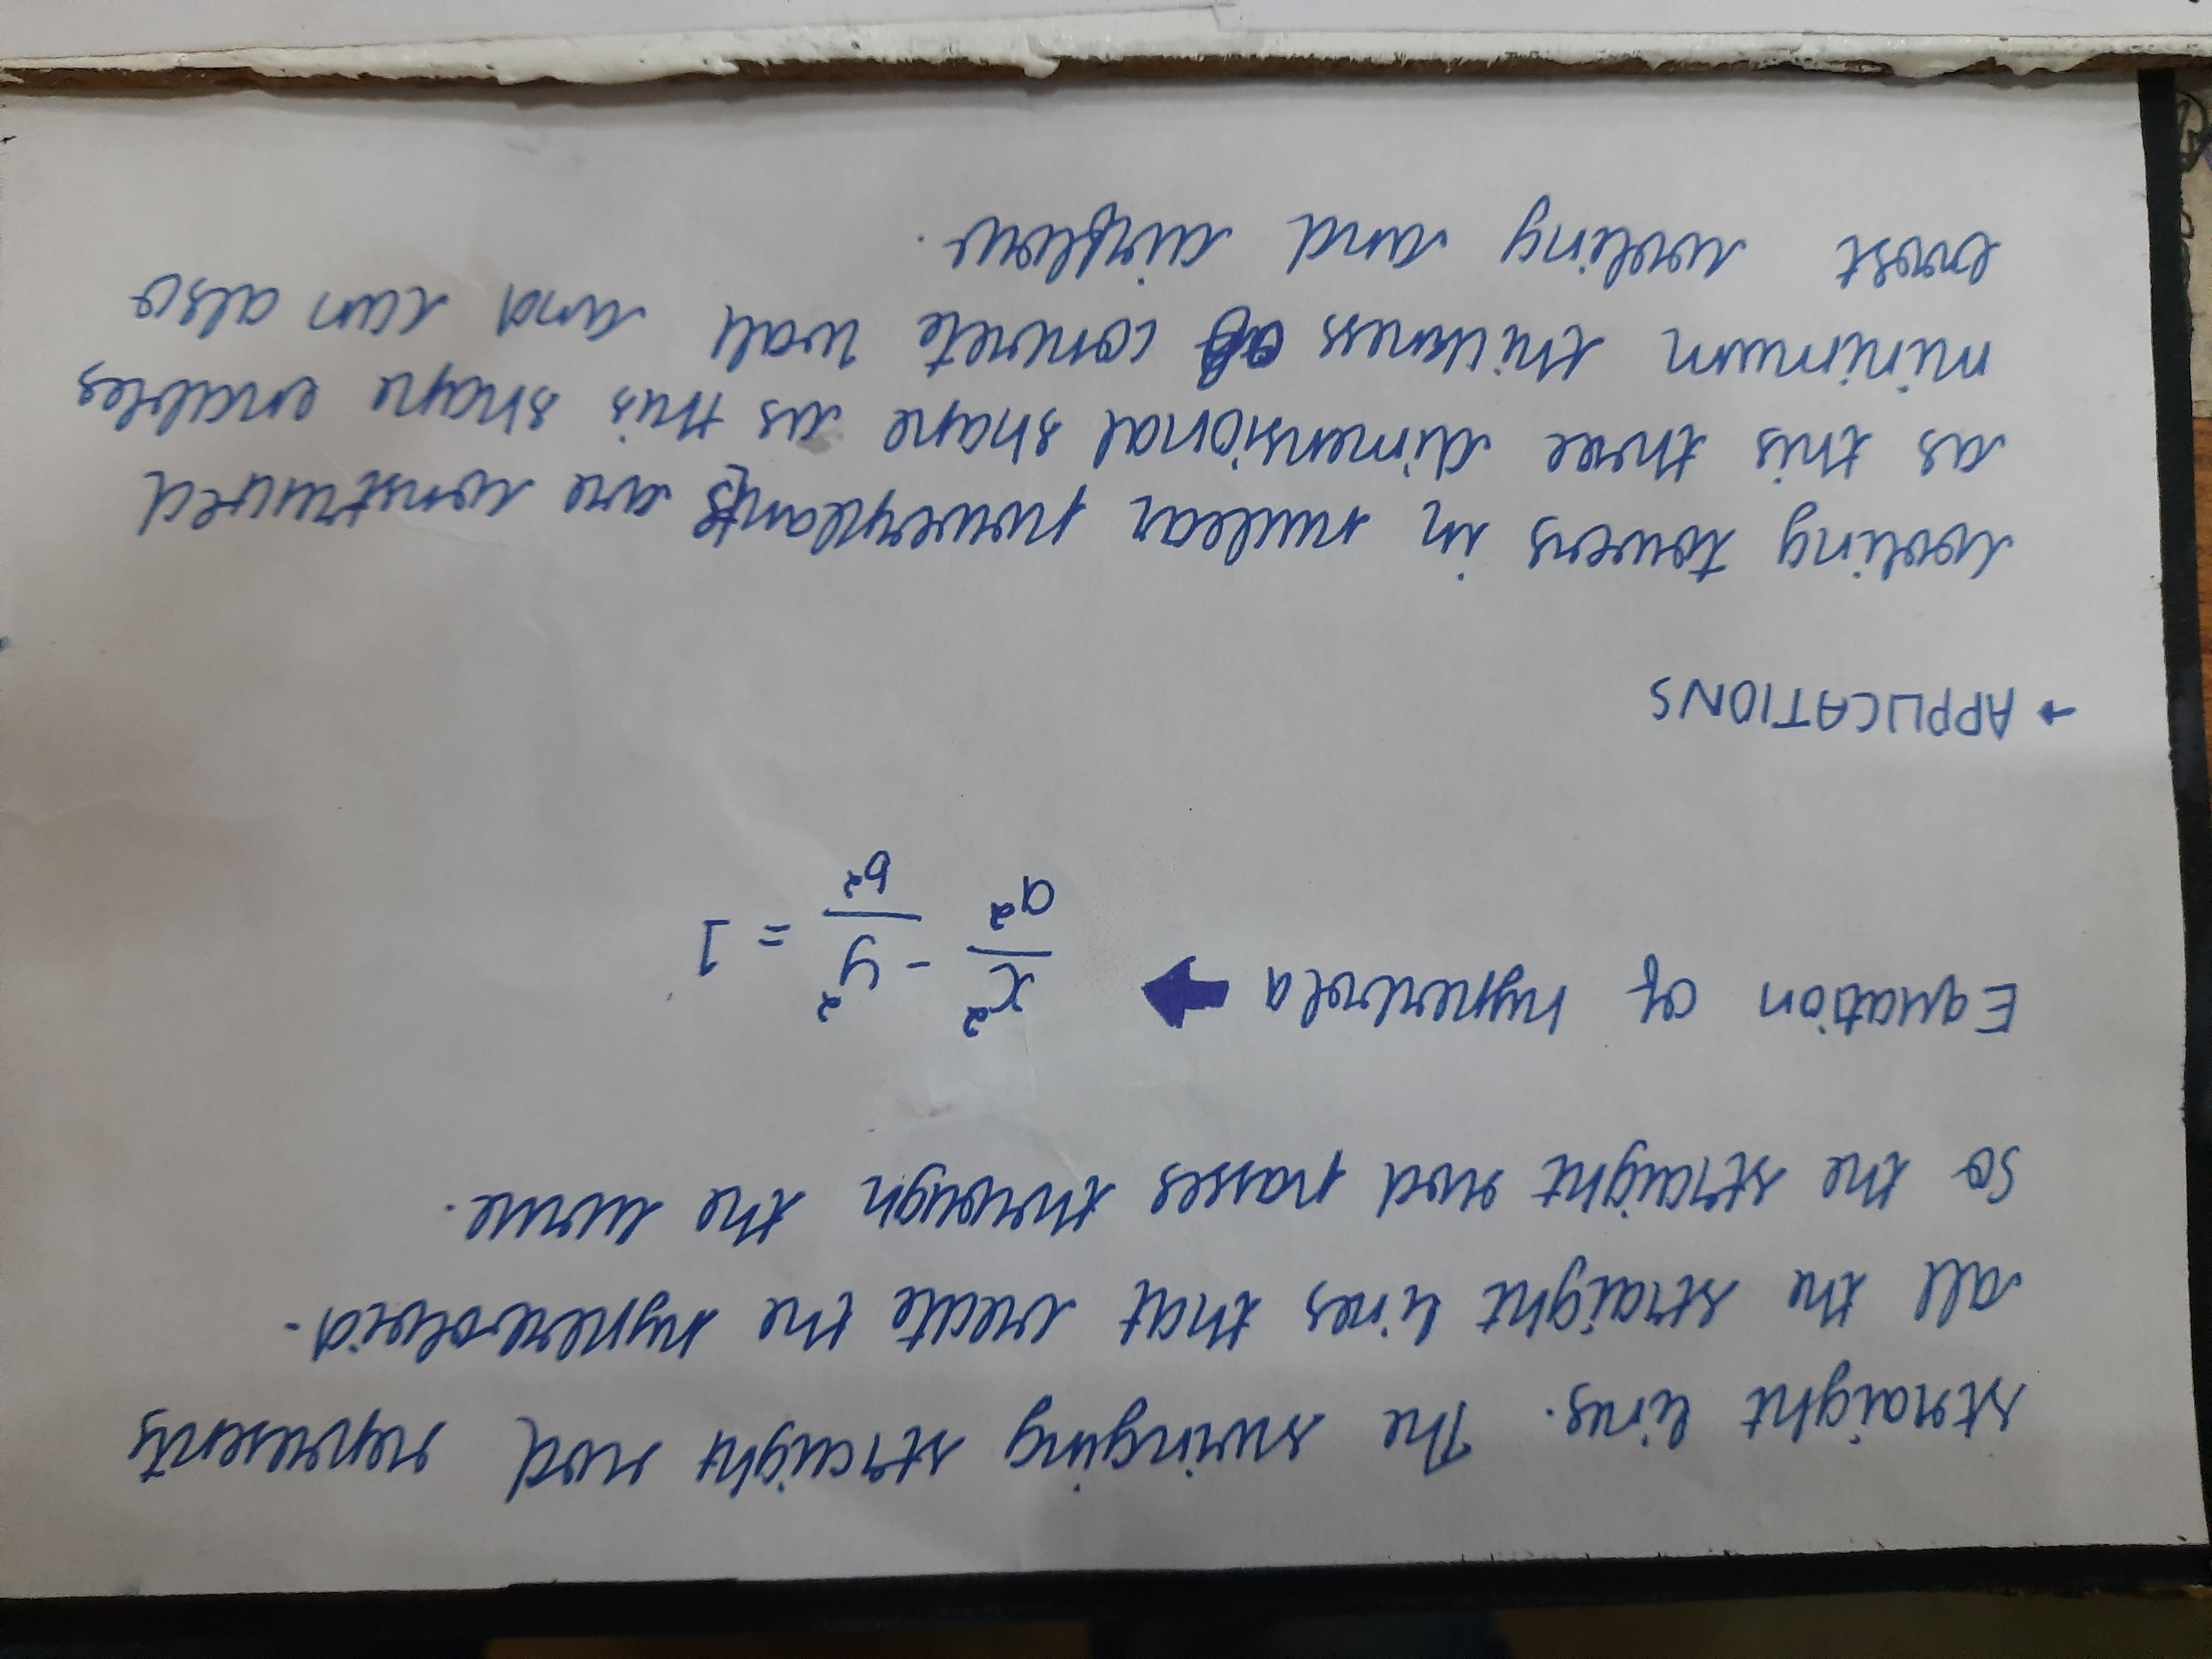 straight lines. The swinging straight rod represents
all the straight lines that create the hyperboloid.
So the straight rod passes through the curve.
Equation of hyperbola ➡ x²/a² - y²/b² = 1
→ APPLICATIONS
cooling towers in nuclear powerplants are constructed
as this three dimensional shape as this shape enables
minimum thickness of concrete wall and can also
boost cooling and airflow.